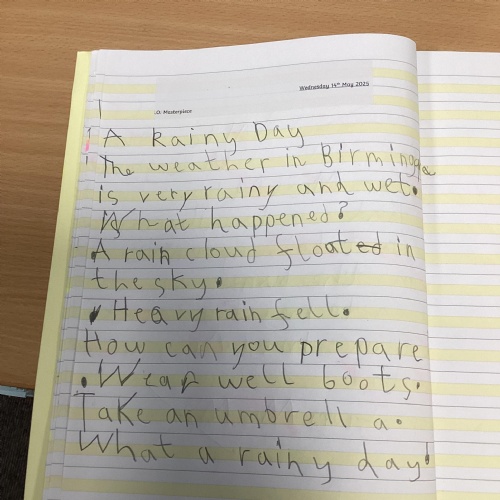 Wednesday 14th May 2025
LO: Masterpiece
A Rainy Day
The weather in Birmingga
is very rainy and wet.
What happened?
A rain cloud floated in
the sky.
Heavy rain fell.
How can you prepare
.Wear well boots.
Take an umbrella.
What a rainy day!